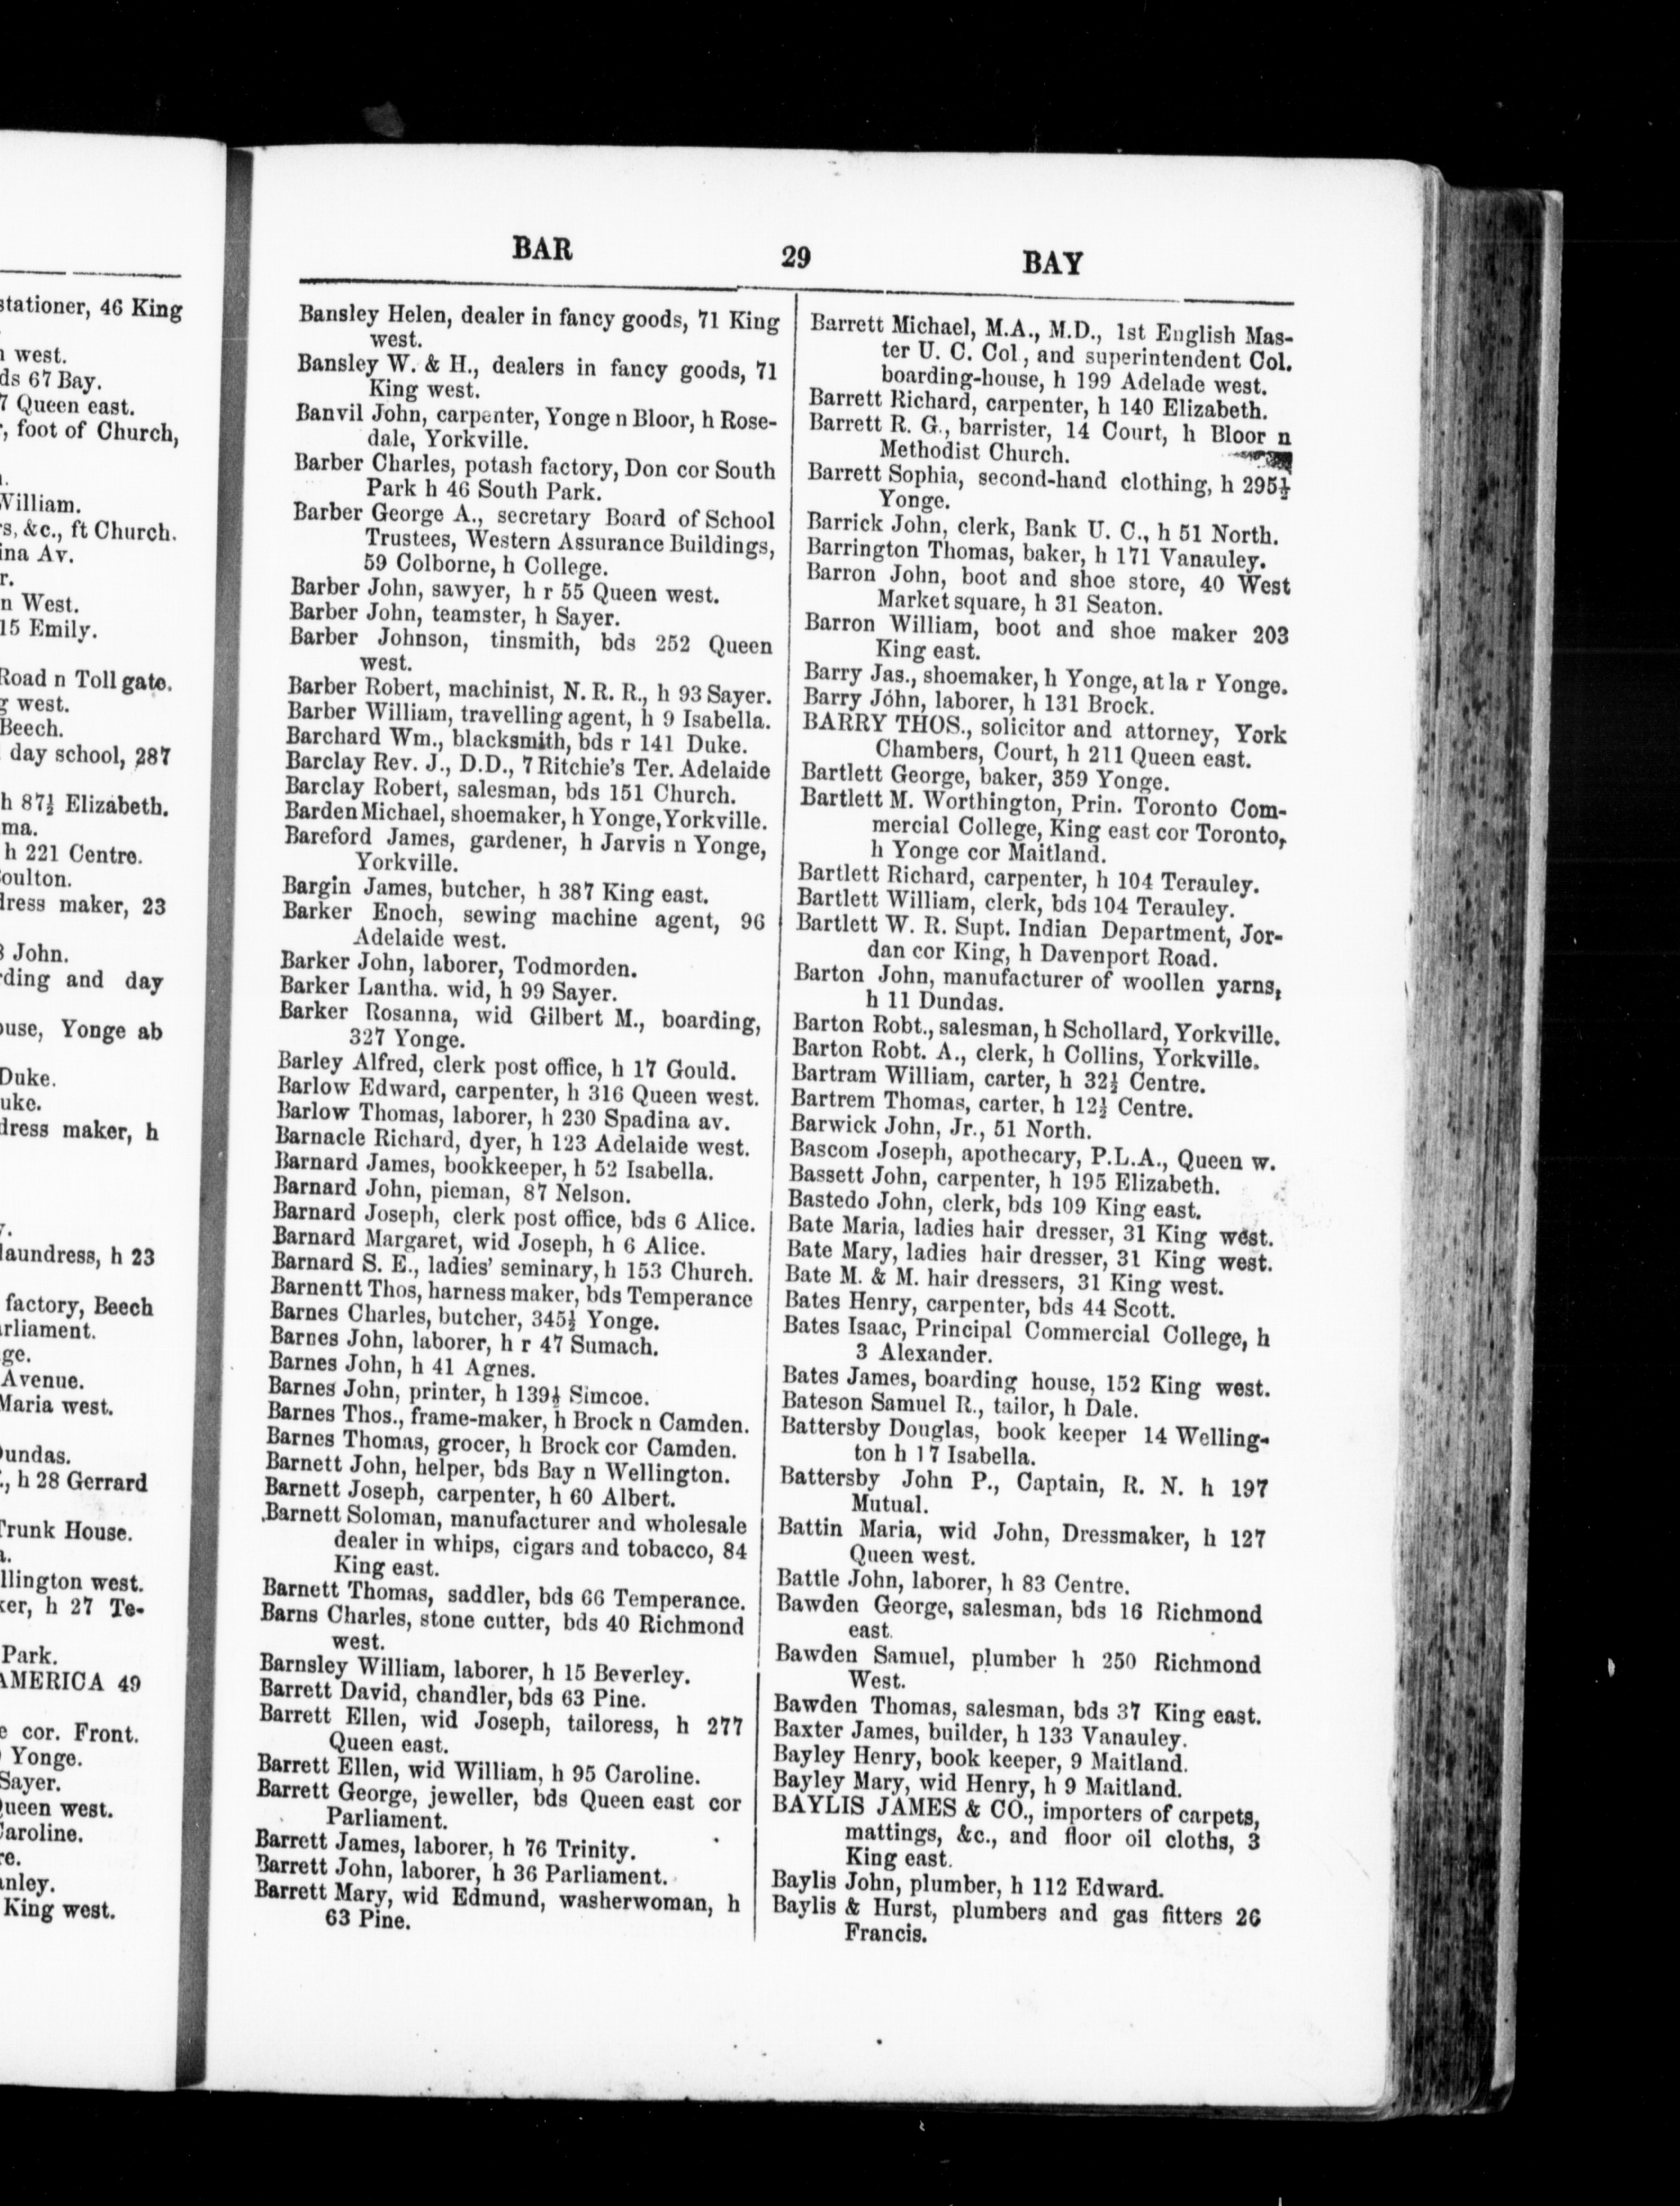 stationer, 46 King
west.
ds 67 Bay.
7 Queen east.
foot of Church,
William.
&c., ft Church.
ina Av.
r.
n West.
15 Emily.
Road n Toll gate.
west.
Beech.
day school, 287
h 87½ Elizabeth.
ma.
h 221 Centre.
oulton.
dress maker, 23
John.
rding and day
ouse, Yonge ab
Duke.
uke.
dress maker, h
laundress, h 23
factory, Beech
rliament.
ge.
Avenue.
Maria west.
Dundas.
h 28 Gerrard
Trunk House.
llington west.
ker, h 27 Te-
Park.
AMERICA 49
cor. Front.
Yonge.
Sayer.
Queen west.
Caroline.
re.
nley.
King west.
BAR 29 BAY
Bansley Helen, dealer in fancy goods, 71 King
west.
Bansley W. & H., dealers in fancy goods, 71
King west.
Banvil John, carpenter, Yonge n Bloor, h Rose-
dale, Yorkville.
Barber Charles, potash factory, Don cor South
Park h 46 South Park.
Barber George A., secretary Board of School
Trustees, Western Assurance Buildings,
59 Colborne, h College.
Barber John, sawyer, h r 55 Queen west.
Barber John, teamster, h Sayer.
Barber Johnson, tinsmith, bds 252 Queen
west.
Barber Robert, machinist, N. R. R., h 93 Sayer.
Barber William, travelling agent, h 9 Isabella.
Barchard Wm., blacksmith, bds r 141 Duke.
Barclay Rev. J., D.D., 7 Ritchie's Ter. Adelaide
Barclay Robert, salesman, bds 151 Church.
Barden Michael, shoemaker, h Yonge, Yorkville.
Bareford James, gardener, h Jarvis n Yonge,
Yorkville.
Bargin James, butcher, h 387 King east.
Barker Enoch, sewing machine agent, 96
Adelaide west.
Barker John, laborer, Todmorden.
Barker Lantha. wid, h 99 Sayer.
Barker Rosanna, wid Gilbert M., boarding,
327 Yonge.
Barley Alfred, clerk post office, h 17 Gould.
Barlow Edward, carpenter, h 316 Queen west.
Barlow Thomas, laborer, h 230 Spadina av.
Barnacle Richard, dyer, h 123 Adelaide west.
Barnard James, bookkeeper, h 52 Isabella.
Barnard John, pieman, 87 Nelson.
Barnard Joseph, clerk post office, bds 6 Alice.
Barnard Margaret, wid Joseph, h 6 Alice.
Barnard S. E., ladies' seminary, h 153 Church.
Barnentt Thos, harness maker, bds Temperance
Barnes Charles, butcher, 345½ Yonge.
Barnes John, laborer, h r 47 Sumach.
Barnes John, h 41 Agnes.
Barnes John, printer, h 139½ Simcoe.
Barnes Thos., frame-maker, h Brock n Camden.
Barnes Thomas, grocer, h Brock cor Camden.
Barnett John, helper, bds Bay n Wellington.
Barnett Joseph, carpenter, h 60 Albert.
Barnett Soloman, manufacturer and wholesale
dealer in whips, cigars and tobacco, 84
King east.
Barnett Thomas, saddler, bds 66 Temperance.
Barns Charles, stone cutter, bds 40 Richmond
west.
Barnsley William, laborer, h 15 Beverley.
Barrett David, chandler, bds 63 Pine.
Barrett Ellen, wid Joseph, tailoress, h 277
Queen east.
Barrett Ellen, wid William, h 95 Caroline.
Barrett George, jeweller, bds Queen east cor
Parliament.
Barrett James, laborer, h 76 Trinity.
Barrett John, laborer, h 36 Parliament.
Barrett Mary, wid Edmund, washerwoman, h
63 Pine.
Barrett Michael, M.A., M.D., 1st English Mas-
ter U. C. Col, and superintendent Col.
boarding-house, h 199 Adelade west.
Barrett Richard, carpenter, h 140 Elizabeth.
Barrett R. G., barrister, 14 Court, h Bloor n
Methodist Church.
Barrett Sophia, second-hand clothing, h 295½
Yonge.
Barrick John, clerk, Bank U. C., h 51 North.
Barrington Thomas, baker, h 171 Vanauley.
Barron John, boot and shoe store, 40 West
Market square, h 31 Seaton.
Barron William, boot and shoe maker 203
King east.
Barry Jas., shoemaker, h Yonge, at la r Yonge.
Barry John, laborer, h 131 Brock.
BARRY THOS., solicitor and attorney, York
Chambers, Court, h 211 Queen east.
Bartlett George, baker, 359 Yonge.
Bartlett M. Worthington, Prin. Toronto Com-
mercial College, King east cor Toronto,
h Yonge cor Maitland.
Bartlett Richard, carpenter, h 104 Terauley.
Bartlett William, clerk, bds 104 Terauley.
Bartlett W. R. Supt. Indian Department, Jor-
dan cor King, h Davenport Road.
Barton John, manufacturer of woollen yarns,
h 11 Dundas.
Barton Robt., salesman, h Schollard, Yorkville.
Barton Robt. A., clerk, h Collins, Yorkville.
Bartram William, carter, h 32½ Centre.
Bartrem Thomas, carter, h 12½ Centre.
Barwick John, Jr., 51 North.
Bascom Joseph, apothecary, P.L.A., Queen w.
Bassett John, carpenter, h 195 Elizabeth.
Bastedo John, clerk, bds 109 King east.
Bate Maria, ladies hair dresser, 31 King west.
Bate Mary, ladies hair dresser, 31 King west.
Bate M. & M. hair dressers, 31 King west.
Bates Henry, carpenter, bds 44 Scott.
Bates Isaac, Principal Commercial College, h
3 Alexander.
Bates James, boarding house, 152 King west.
Bateson Samuel R., tailor, h Dale.
Battersby Douglas, book keeper 14 Welling-
ton h 17 Isabella.
Battersby John P., Captain, R. N. h 197
Mutual.
Battin Maria, wid John, Dressmaker, h 127
Queen west.
Battle John, laborer, h 83 Centre.
Bawden George, salesman, bds 16 Richmond
east.
Bawden Samuel, plumber h 250 Richmond
West.
Bawden Thomas, salesman, bds 37 King east.
Baxter James, builder, h 133 Vanauley.
Bayley Henry, book keeper, 9 Maitland.
Bayley Mary, wid Henry, h 9 Maitland.
BAYLIS JAMES & CO., importers of carpets,
mattings, &c., and floor oil cloths, 3
King east.
Baylis John, plumber, h 112 Edward.
Baylis & Hurst, plumbers and gas fitters 26
Francis.